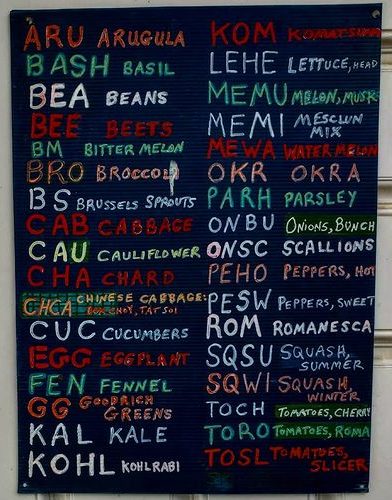 ARU ARUGULA
BASH BASIL
BEA BEANS
BEE BEETS
BM BITTER MELON
BRO BROCCOLI
BS BRUSSELS SPROUTS
CAB CABBAGE
CAU CAULIFLOWER
CHA CHARD
CHCA CHINESE CABBAGE:
BOK CHOY, TAT SOI
CUC CUCUMBERS
EGG EGGPLANT
FEN FENNEL
GG GOODRICH
GREENS
KAL KALE
KOHL KOHLRABI
KOM KOMATSUNA
LEHE LETTUCE, HEAD
MEMU MELON, MUSK
MEMI MESCLUN
MIX
MEWA WATERMELON
OKR OKRA
PARH PARSLEY
ONBU ONIONS, BUNCH
ONSC SCALLIONS
PEHO PEPPERS, HOT
PESW PEPPERS, SWEET
ROM ROMANESCA
SQSU SQUASH,
SUMMER
SQWI SQUASH,
WINTER
TOCH TOMATOES, CHERRY
TORO TOMATOES, ROMA
TOSL TOMATOES,
SLICER